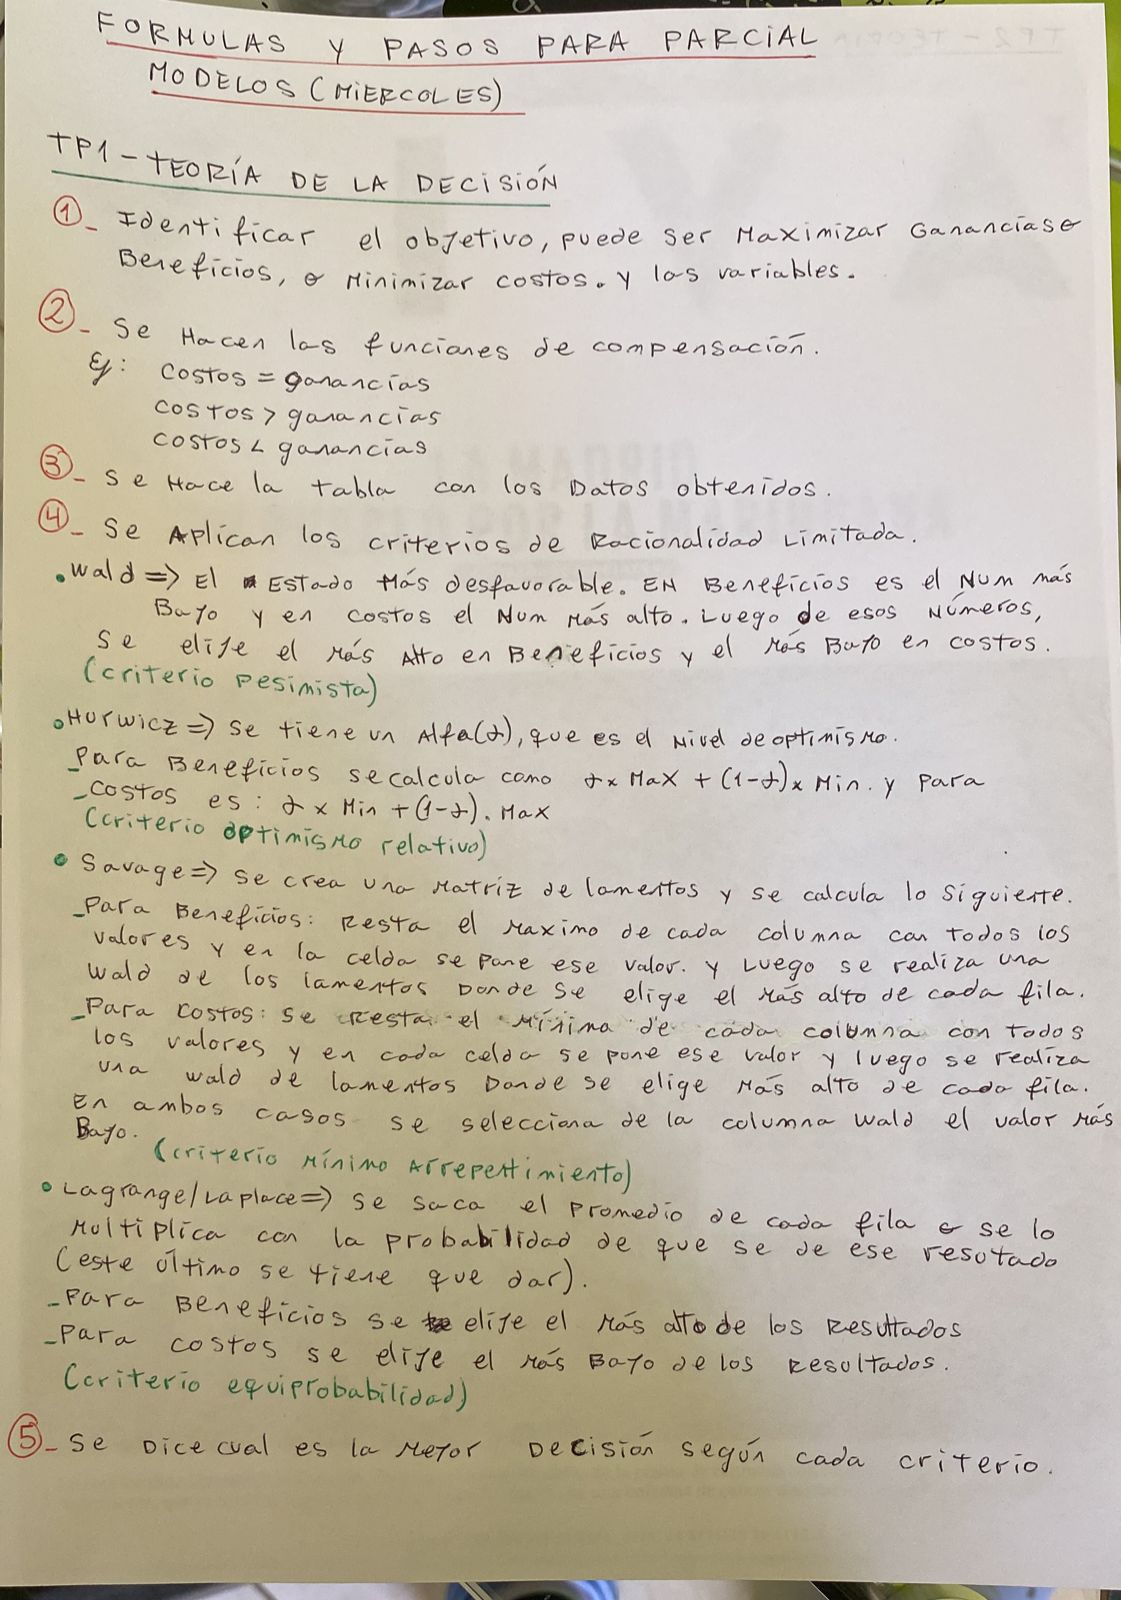 FORMULAS Y PASOS PARA PARCIAL
MODELOS (MIERCOLES)
TP1 - TEORÍA DE LA DECISIÓN
1_ Identificar el objetivo, puede ser Maximizar Ganancias o
Beneficios, o Minimizar costos. y las variables.
2_ Se Hacen las funciones de compensación.
Ej: Costos = ganancías
costos > ganancías
costos < ganancías
3_ Se Hace la tabla con los Datos obtenidos.
4_ Se Aplican los criterios de Racionalidad Limitada.
• Wald => El Estado Más desfavorable. EN Beneficios es el Num más
Bajo y en costos el Num Más alto. Luego de esos Números,
se elije el Más Alto en Beneficios y el Más Bajo en costos.
(criterio Pesimista)
• Hurwicz => Se tiene un Alfa(α), que es el Nivel de optimismo.
_Para Beneficios se calcula como α x Max + (1-α) x Min. y Para
_Costos es: α x Min + (1-α). Max
(criterio optimismo relativo)
• Savage => Se crea una Matriz de lamentos y se calcula lo Siguiente.
_Para Beneficios: Resta el Maximo de cada columna con todos los
valores y en la celda se pone ese valor. y Luego se realiza una
Wald de los lamentos Donde Se elige el Más alto de cada fila.
_Para costos: se resta el Mínimo de cada columna con todos
los valores y en cada celda se pone ese valor y luego se realiza
una wald de lamentos Donde se elige Más alto de cada fila.
En ambos casos se selecciona de la columna Wald el valor Más
Bajo.
(criterio Mínimo Arrepentimiento)
• Lagrange/Laplace => Se saca el Promedio de cada fila o se lo
Multiplica con la probabilidad de que se de ese resutado
(este último se tiene que dar).
_Para Beneficios se elije el Más alto de los Resultados
_Para costos se elije el Más Bajo de los Resultados.
(criterio equiprobabilidad)
5_ Se Dice cual es la Mejor Decisión según cada criterio.